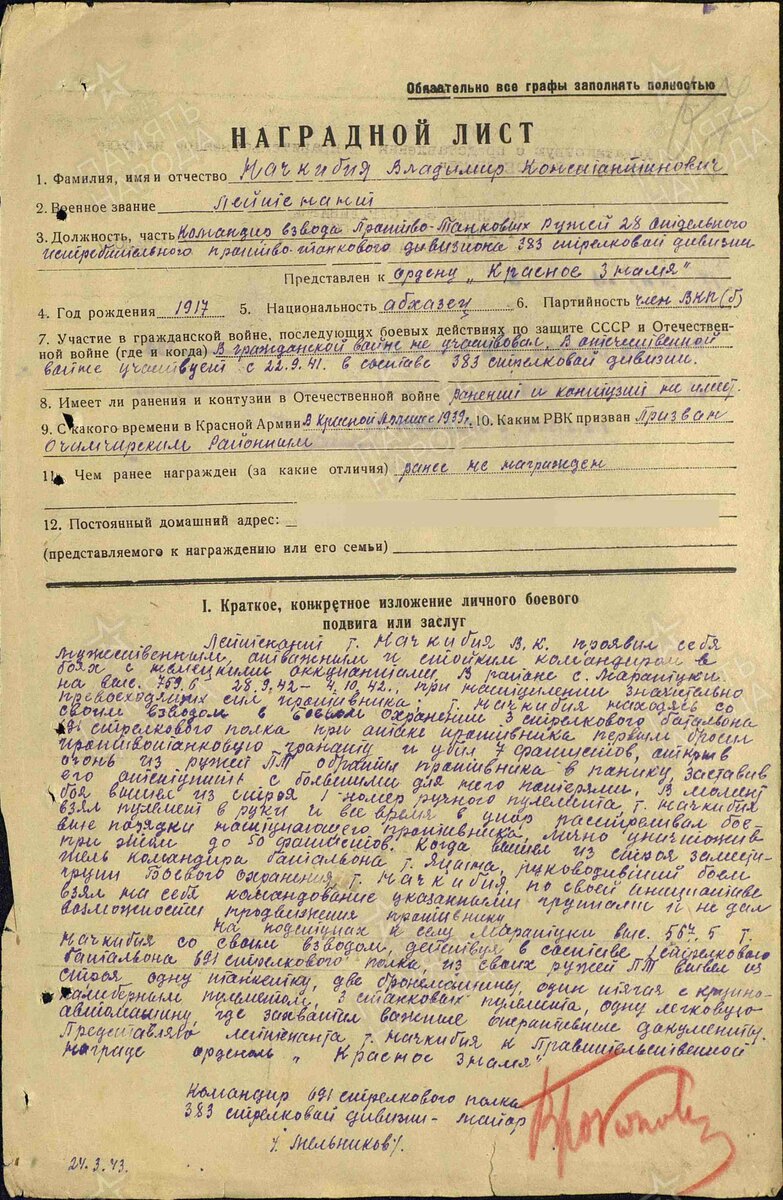 Обязательно все графы заполнять полностью
НАГРАДНОЙ ЛИСТ
1. Фамилия, имя и отчество Мачкибия Владимир Константинович
2. Военное звание Лейтенант
3. Должность, часть Командир взвода Противо-Танковых Ружей 28 отдельного
истребительного противо-танкового дивизиона 383 стрелковой дивизии
Представлен к ордену „Красное Знамя"
4. Год рождения 1917 5. Национальность абхазец 6. Партийность член ВКП(б)
7. Участие в гражданской войне, последующих боевых действиях по защите СССР и Отечествен-
ной войне (где и когда) В гражданской войне не участвовал. В отечественной
войне участвует с 22.9.41. в составе 383 стрелковой дивизии.
8. Имеет ли ранения и контузии в Отечественной войне ранений и контузий не имеет.
9. С какого времени в Красной Армии В Красной Армии с 1939г. 10. Каким РВК призван Призван
Очимчирским Районным
11. Чем ранее награжден (за какие отличия) ранее не награжден
12. Постоянный домашний адрес:
(представляемого к награждению или его семьи)
I. Краткое, конкретное изложение личного боевого
подвига или заслуг
Лейтенант т. Мачкибия В.К. проявил себя
мужественным, отважным и стойким командиром в
боях с немецкими оккупантами. В районе с. Маратуки
на выс. 759,6 28.9.42 – 4.10.42., при наступлении значительно
превосходящих сил противника, т. Мачкибия находясь со
своим взводом в боевом охранении 3 стрелкового батальона
691 стрелкового полка при атаке противника первым бросил
противотанковую гранату и убил 7 фашистов, открыв
огонь из ружей ПТ обратил противника в панику, заставив
его отступить с большими для него потерями. В момент
боя вышел из строя 1 номер ручного пулемета, т. Мачкибия
взял пулемет в руки и все время в упор расстреливал бое-
вые порядки наступающего противника, лично уничтожив
при этом до 50 фашистов. Когда вышел из строя замести-
тель командира батальона т. руководивший боем
группы боевого охранения, т. Мачкибия, по своей инициативе
взял на себя командование указанными группами и не дал
возможности продвижения противнику.
На подступах к селу Маратуки выс. 567,5 т.
Мачкибия со своим взводом, действуя в составе 1 стрелкового
батальона 691 стрелкового полка, из своих ружей ПТ вывел из
строя одну танкетку, две бронемашины, один тягач с крупно-
калиберным пулеметом, 3 станковых пулемета, одну легковую
автомашину, где захватил важные оперативные документы.
Представляю лейтенанта т. Мачкибия к Правительственной
награде орденом „Красное Знамя"
Командир 691 стрелкового полка
383 стрелковой дивизии – майор
/Мельников/.
24.3.43.
ПАМЯТЬ НАРОДА